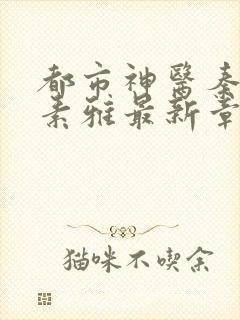 都市神醫秦
素雅最新章
猫咪不喫余